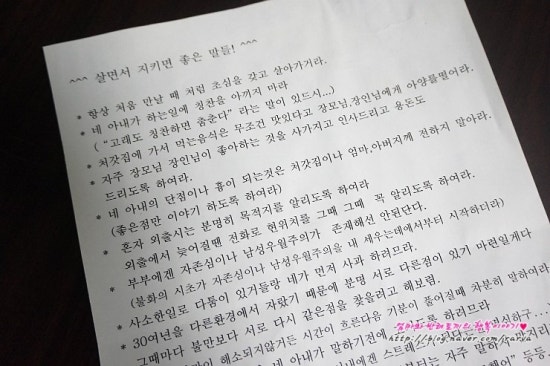 ^^^ 살면서 지키면 좋은 말들! ^^^
* 항상 처음 만날 때 처럼 초심을 갖고 살아가거라.
* 네 아내가 하는일에 칭찬을 아끼지 마라
( "고래도 칭찬하면 춤춘다" 라는 말이 있드시...)
* 처갓집에 가서 먹는음식은 무조건 맛있다고 장모님,장인님에게 아양를떨어라.
* 자주 장모님 장인님이 좋아하는 것을 사가지고 인사드리고 용돈도
드리도록 하여라.
* 네 아내의 단점이나 흉이 되는것은 처갓집이나 엄마,아버지께 전하지 말아라.
(좋은점만 이야기 하도록 하여라)
* 혼자 외출시는 분명히 목적지를 알리도록 하여라
외출에서 늦어질땐 전화로 현위치를 그때 그때 꼭 알리도록 하여라.
* 부부에겐 자존심이나 남성우월주의가 존재해선 안된단다.
(불화의 시초가 자존심이나 남성우월주의을 내 세우는데에서부터 시작하더라)
* 사소한일로 다툼이 있거들랑 네가 먼저 사과 하려므라.
* 30여년을 다른환경에서 자랐기 때문에 분명 서로 다른점이 있기 마련일게다
그때마다 불만보다 서로 다시 같은점을 찾을려고 해보렴.
해소되지않거든 시간이 흐른다음 기분이 풀어질때 차분히 말하여라
네 아내가 말하기전에 도록 하려므라
http://blog.naver.com/rsarva